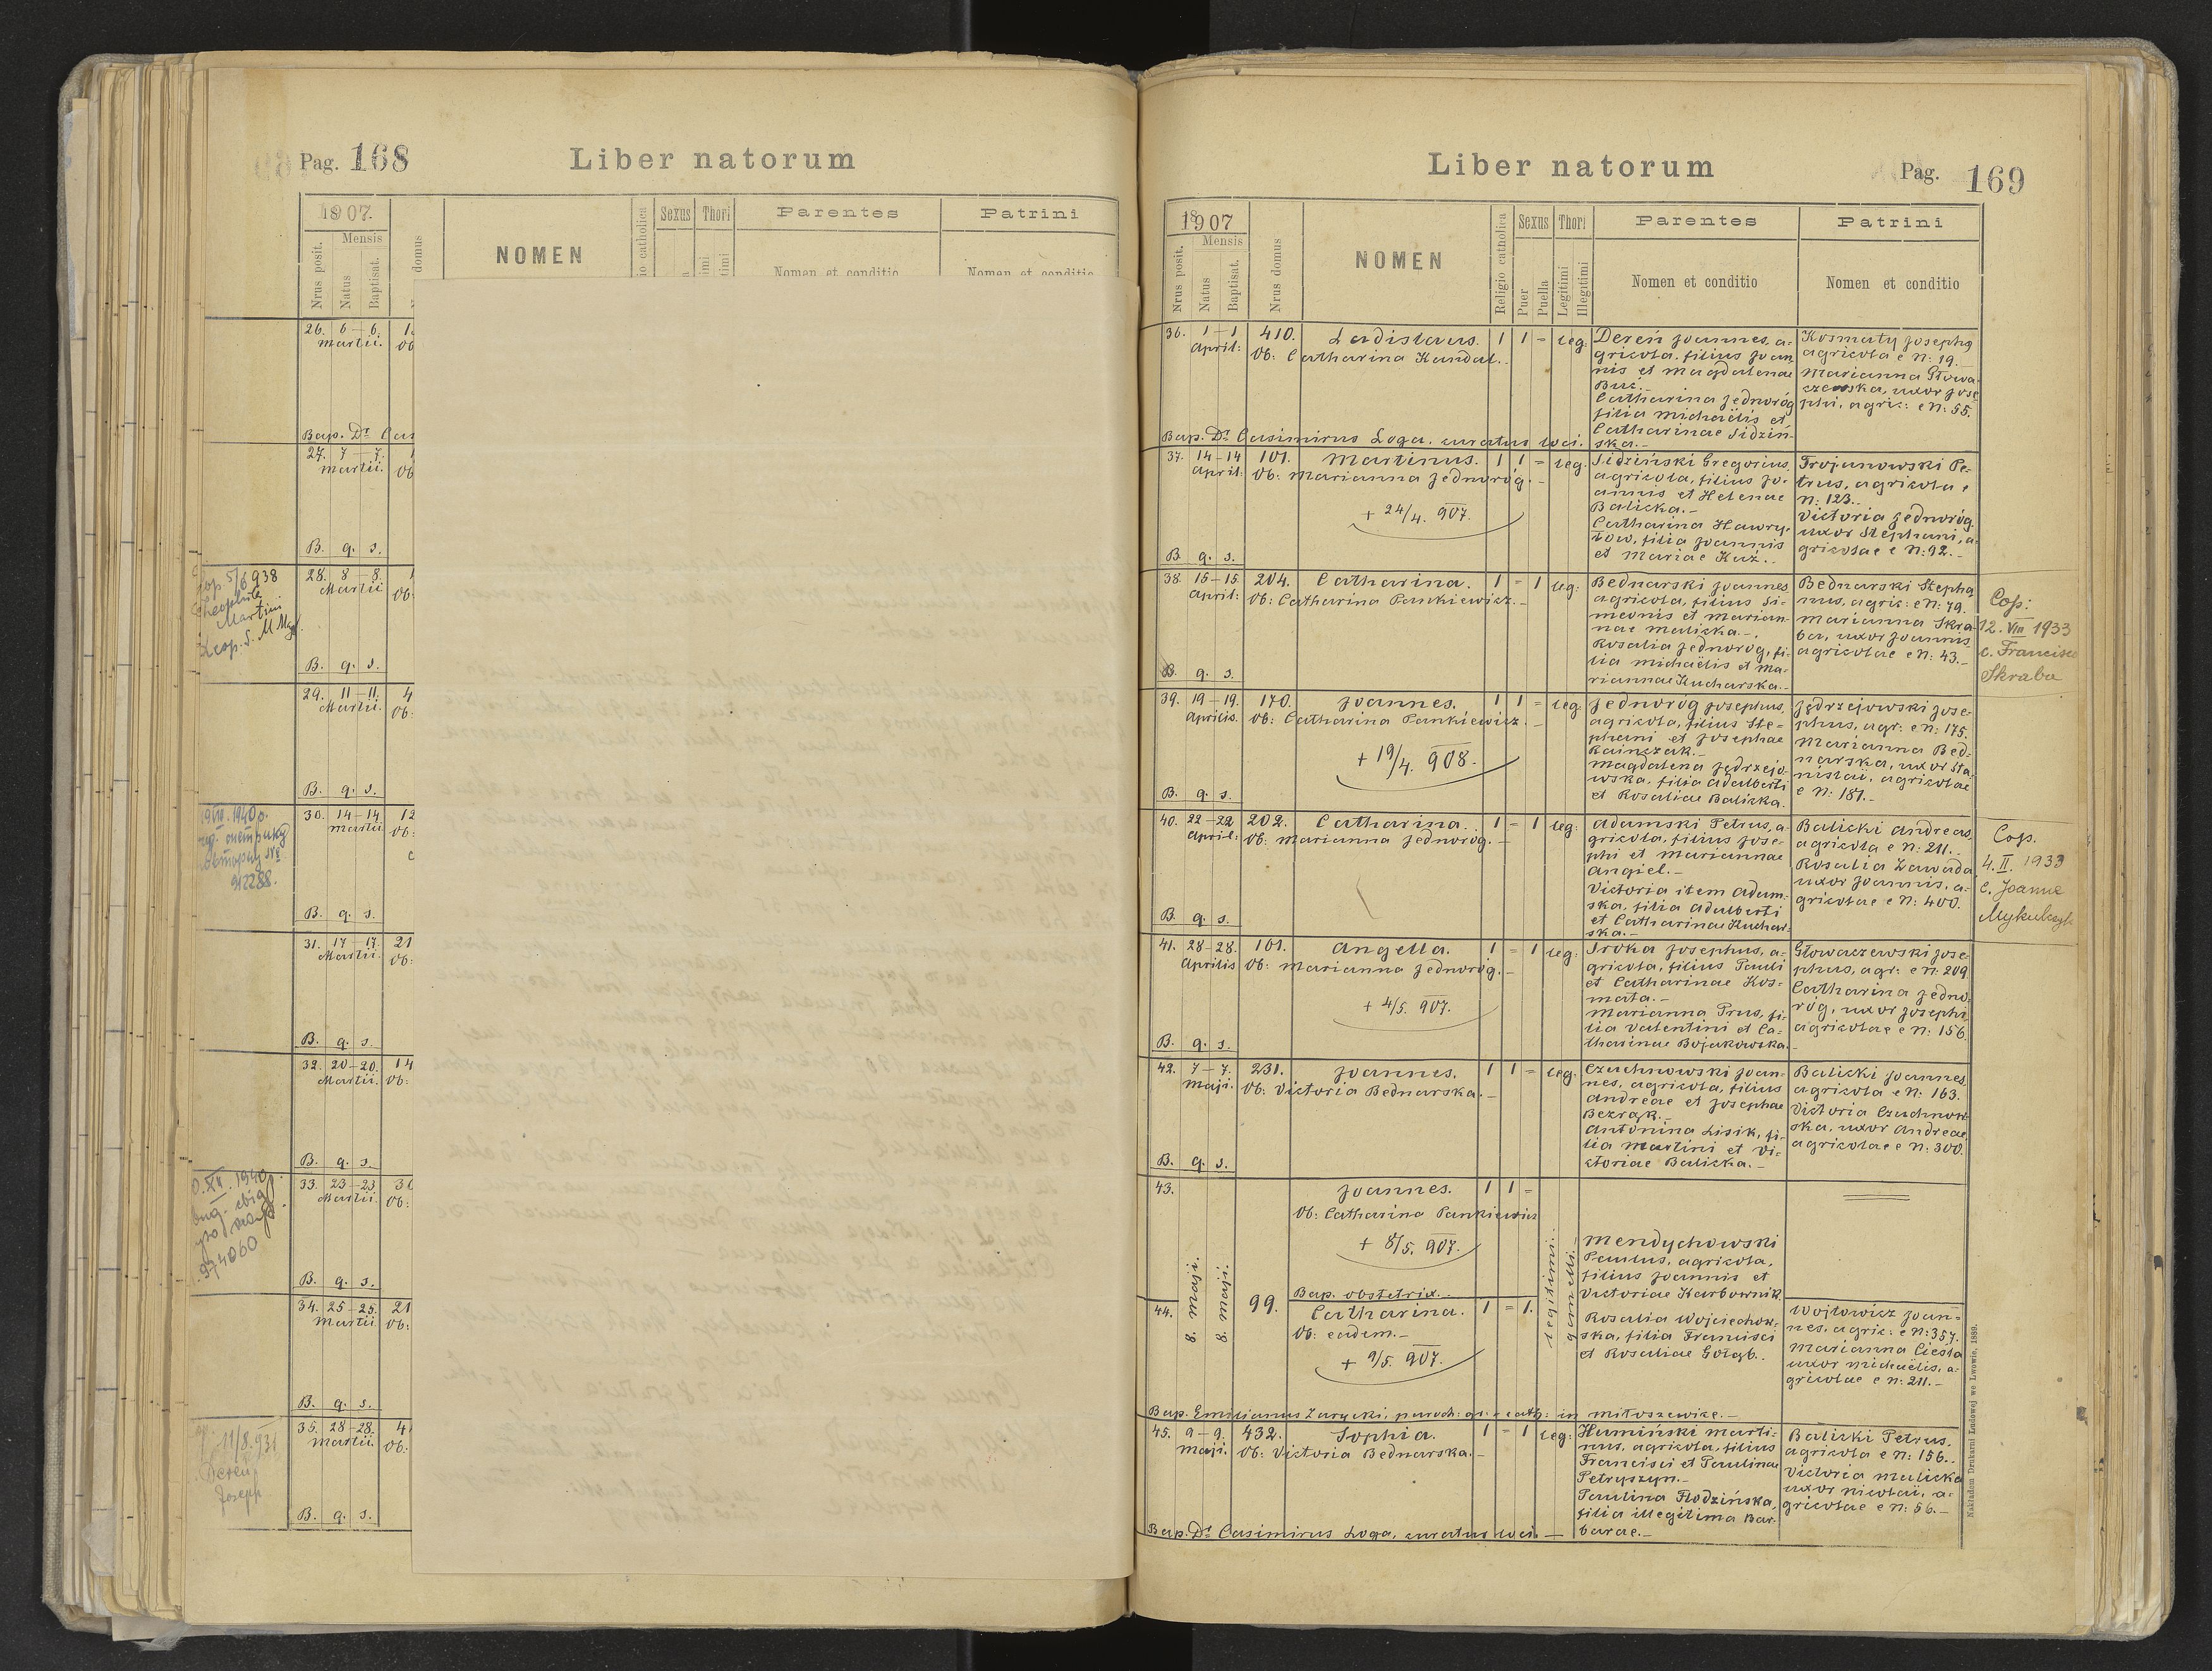 Pag. 168
Liber natorum
1907.
Mensis
Nrus posit.
Natus
Baptisat.
domus
NOMEN
Sexus
Thori
Parentes
Patrini
Nomen et conditio
Nomen et conditio
26. 6-6.
Martii.
Bap. Dr Cas
27. 7-7.
Martii.
B. q. s.
28. 8-8.
Martii
B. q. s.
Cop. 5/6 938
Theophile
Martini
29. 11-11.
Martii.
B. q. s.
30. 14-14
Martii
B. q. s.
912288.
31. 17-17.
Martii.
B. q. s.
32. 20-20.
Martii.
B. q. s.
33. 23-23.
Martii.
B. q. s.
974060
34. 25-25.
Martii
B. q. s.
35. 28-28.
Martii.
B. q. s.
11/8.931
Dereń
Joseph
Liber natorum
Pag. 169
1907
Mensis
Nrus posit.
Natus
Baptisat.
Nrus domus
NOMEN
Religio catholica
Sexus
Puer
Puella
Thori
Legitimi
Illegitimi
Parentes
Nomen et conditio
Patrini
Nomen et conditio
36. 1-1 April: 410. Ladislaus. 1 1 = leg:
Ob: Catharina Kandal.-
Dereń Joannes, a-
gricola, filius Joan
nis et Magdalenae
Buć.-
Catharina Jednoróg
filia Michaëlis et
Catharinae Sidziń-
ska.-
Kosmaty Josephg
agricola e N: 19.
Marianna Głowa-
czewska, uxor Jose
phi, agric: e N: 55.
Bap. Dr Casimirus Loga, curatus loci.
37. 14-14 April: 101. Martinus. 1 1 = leg.
Ob: Marianna Jednoróg.-
+ 24/4. 907.
Sidziński Gregorius,
agricola, filius Jo-
annis et Helenae
Balicka.-
Catharina Hawry-
łow, filia Joannis
et Mariae Kuź.-
Trojanowski Pe-
trus, agricola e
N: 123.-
Victoria Jednoróg
uxor Stephani, a-
gricolae e N: 92.-
B. q. s.
38. 15-15 April: 204. Catharina. 1 = 1 leg:
Ob: Catharina Pankiewicz.-
Bednarski Joannes
agricola, filius Si-
meonis et Marian-
nae Malicka.-
Rosalia Jednoróg, fi-
lia Michaëlis et Ma-
riannae Kucharska.-
Bednarski Stepha
nus, agric: e N: 79.
Marianna Skra-
ba, uxor Joannis
agricolae e N: 43.-
Cop:
12. VIII 1933
c. Francisco
Skraba
B. q. s.
39. 19-19. Aprilis. 170. Joannes. 1 1 = leg.
Ob: Catharina Pankiewicz.-
+ 19/4. 908.
Jednoróg Josephus,
agricola, filius Ste-
phani et Josephae
Kainczak.-
Magdalena Jędrzejo-
wska, filia Adalberti
et Rosaliae Balicka.
Jędrzejowski Jose-
phus, agr: e N: 175.
Marianna Bed-
narska, uxor Sta-
nislai, agricolae
e N: 187.-
B. q. s.
40. 22-22 April: 202. Catharina. 1 = 1 leg:
Ob: Marianna Jednoróg.-
Adamski Petrus, a-
gricola, filius Jose-
phi et Mariannae
Angiel.-
Victoria item Adam-
ska, filia Adalberti
et Catharinae Kuchar-
ska.-
Balicki Andreas,
agricola e N: 211.-
Rosalia Zawada
uxor Joannis, a-
gricolae e N: 400.
Cop.
4. II. 1933
c. Joanne
B. q. s.
41. 28-28. Aprilis 101. Angella. 1 = 1 leg:
Ob: Marianna Jednoróg.-
+ 4/5. 907.
Sroka Josephus, a-
gricola, filius Pauli
et Catharinae Kos-
mata.-
Marianna Prus, fi-
lia Valentini et Ca-
tharinae Bojakowska.-
Głowaczewski Jose-
phus, agr: e N: 209.
Catharina Jedno-
róg, uxor Josephi,
agricolae e N: 156.
B. q. s.
42. 7-7. Maji. 231. Joannes. 1 1 = leg:
Ob: Victoria Bednarska.-
Czuchnowski Joan-
nes, agricola, filius
Andreae et Josephae
Bezrąk.-
Antonina Lisik, fi-
lia Martini et Vi-
ctoriae Balicka.-
Balicki Joannes,
agricola e N: 163.
Victoria Czuchnow-
ska, uxor Andreae,
agricolae e N: 300.
B. q. s.
43. Joannes. 1 1 =
Ob: Catharina Pankiewicz
+ 8/5. 907.
Bap. obstetrix.-
8. Maji.
8. Maji.
99.
legitimi.
gemelli.
Mendychowski
Paulus, agricola,
filius Joannis et
Victoriae Karbownik.
Rosalia Wojciechow-
ska, filia Francisci
et Rosaliae Gołąb.
44. Catharina. 1 = 1.
Ob: eadem.-
+ 9/5. 907.
Wojtowicz Joan-
nes, agric: e N: 357.
Marianna Cieśla
uxor Michaëlis, a-
gricolae e N: 211.-
Bap. Emilianus Zarycki, paroch: gr: cath: in Miłoszewice.-
45. 9-9. Maji. 432. Sophia. 1 = 1 leg:
Ob: Victoria Bednarska.-
Humiński Marti-
nus, agricola, filius
Francisci et Paulinae
Petryszyn.-
Paulina Flodzińska,
filia illegitima Bar-
barae.-
Balicki Petrus,
agricola e N: 156.-
Victoria Malicka
uxor Nicolai, a-
gricolae e N: 56.-
Bap. Dr Casimirus Loga, curatus loci.-
Nakładem Drukarni Ludowej we Lwowie, 1889.